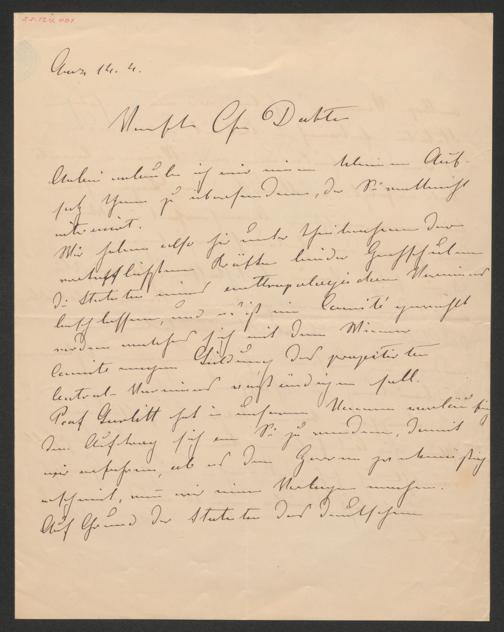 Graz 14. 4.
Verehrter Herr Doktor
Anbei erlaube ich mir einen kleinen Auf-
satz Ihnen zu übersenden, der Sie vielleicht
interessirt.
Wir haben also hier unter Theilnahme der
vortrefflichsten Kräfte beider Hochschulen
die Statuten eines anthropologischen Vereines
beschlossen, und es ist ein Comité gewählt
worden welches sich mit dem Wiener
Comite wegen Bildung des projectirten
Central-Vereines verständigen soll.
Prof Gurlitt hat in unserem Namen
den Auftrag sich an Sie zu wenden, damit
wir erfahren, ob es den Herren zweckmässig
erscheint, wenn wir einen
Auf Grund der Statuten des deutschen